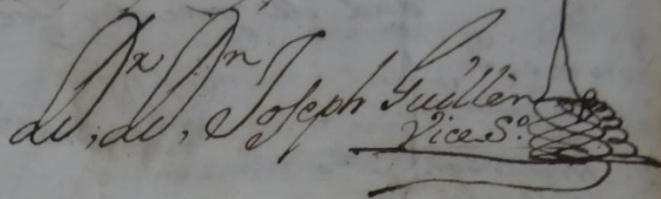 Dr. Dn. Joseph Guillèn
Vice S.o